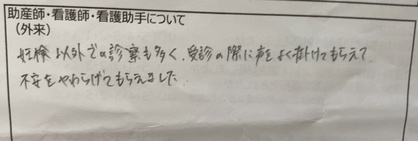 助産師・看護師・看護助手について
（外来）
妊検以外での診察も多く、受診の際に声をよく掛けてもらえて
不安をやわらげてもらえました